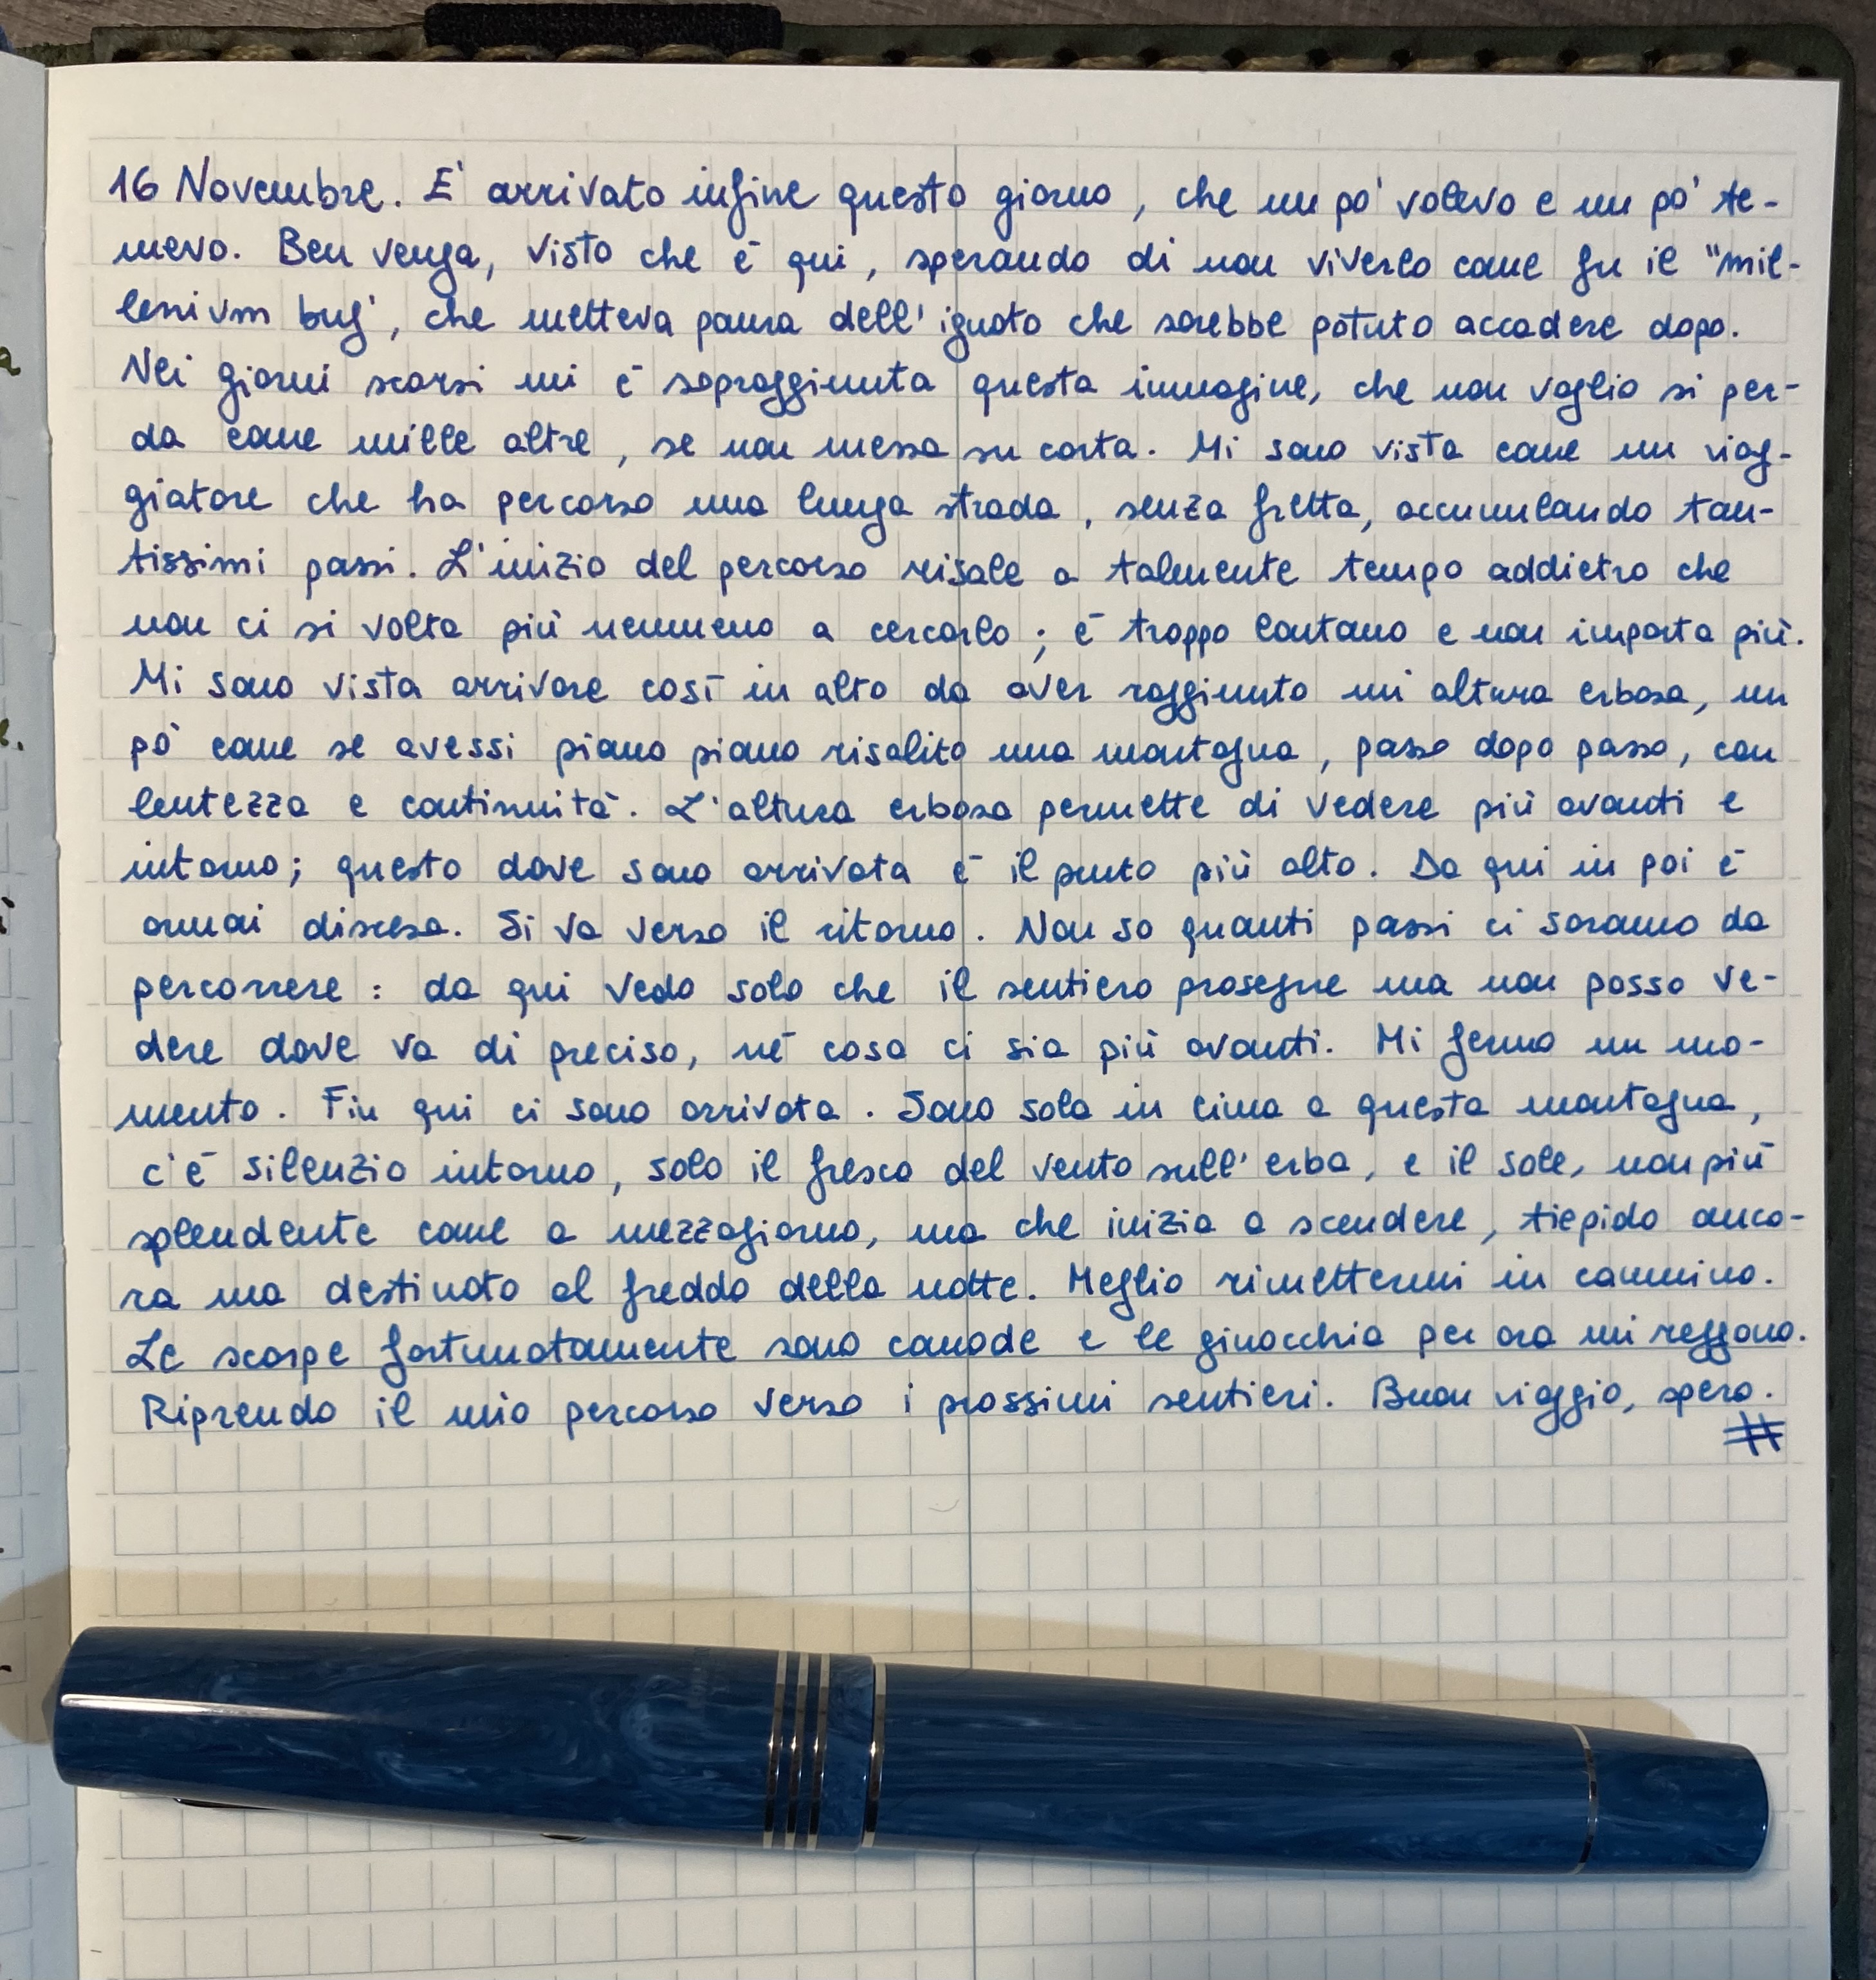 16 Novembre. E' arrivato infine questo giorno, che un pò volevo e un pò te-
mevo. Ben venga, visto che è qui, sperando di non viverlo come fu il "mil-
lenium bug", che metteva paura dell'ignoto che sarebbe potuto accadere dopo.
Nei giorni scorsi mi è sopraggiunta questa immagine, che non voglio si per-
da come mille altre, se non messa su carta. Mi sono vista come un viag-
giatore che ha percorso una lunga strada, senza fretta, accumulando tan-
tissimi passi. L'inizio del percorso risale a talmente tempo addietro che
non ci si volta più nemmeno a cercarlo; è troppo lontano e non importa più.
Mi sono vista arrivare così in alto da aver raggiunto un'altura erbosa, un
pò come se avessi piano piano risalito una montagna, passo dopo passo, con
lentezza e continuità. L'altura erbosa permette di vedere più avanti e
intorno; questo dove sono arrivata è il punto più alto. Da qui in poi è
ormai discesa. Si va verso il ritorno. Non so quanti passi ci saranno da
percorrere: da qui vedo solo che il sentiero prosegue ma non posso ve-
dere dove va di preciso, nè cosa ci sia più avanti. Mi fermo un mo-
mento. Fin qui ci sono arrivata. Sono sola in cima a questa montagna,
c'è silenzio intorno, solo il fresco del vento sull'erba, e il sole, non più
splendente come a mezzogiorno, ma che inizia a scendere, tiepido anco-
ra ma destinato al freddo della notte. Meglio rimettermi in cammino.
Le scarpe fortunatamente sono comode e le ginocchia per ora mi reggono.
Riprendo il mio percorso verso i prossimi sentieri. Buon viaggio, spero.
#